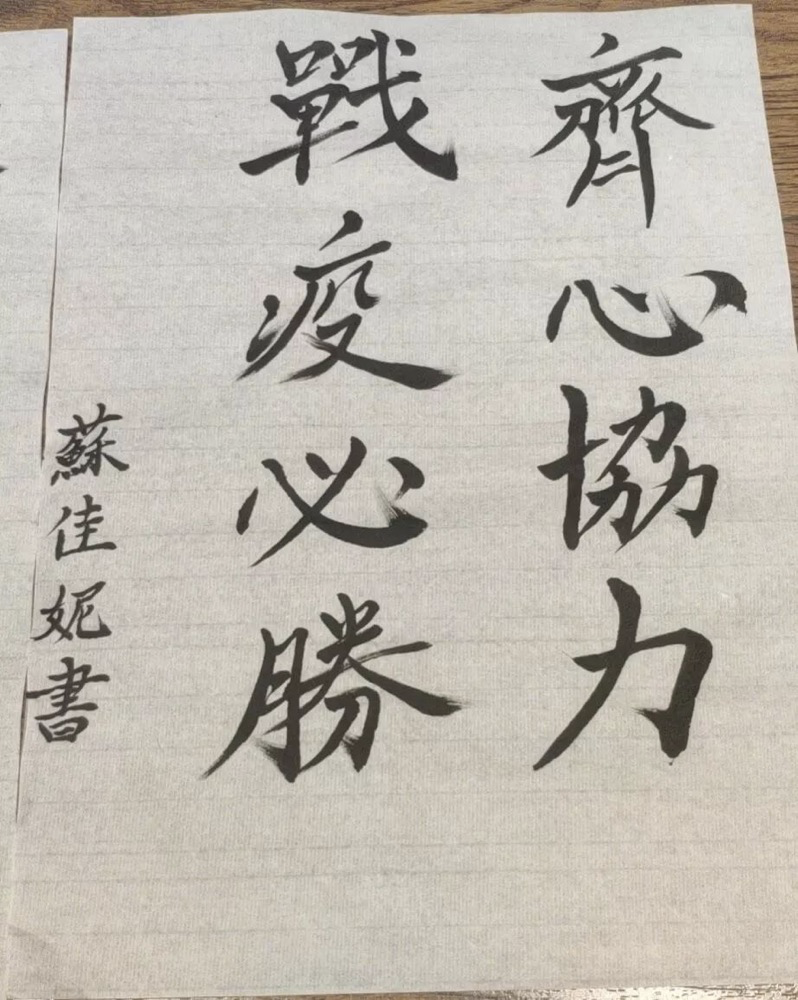 齊心協力
戰疫必勝
蘇佳妮書